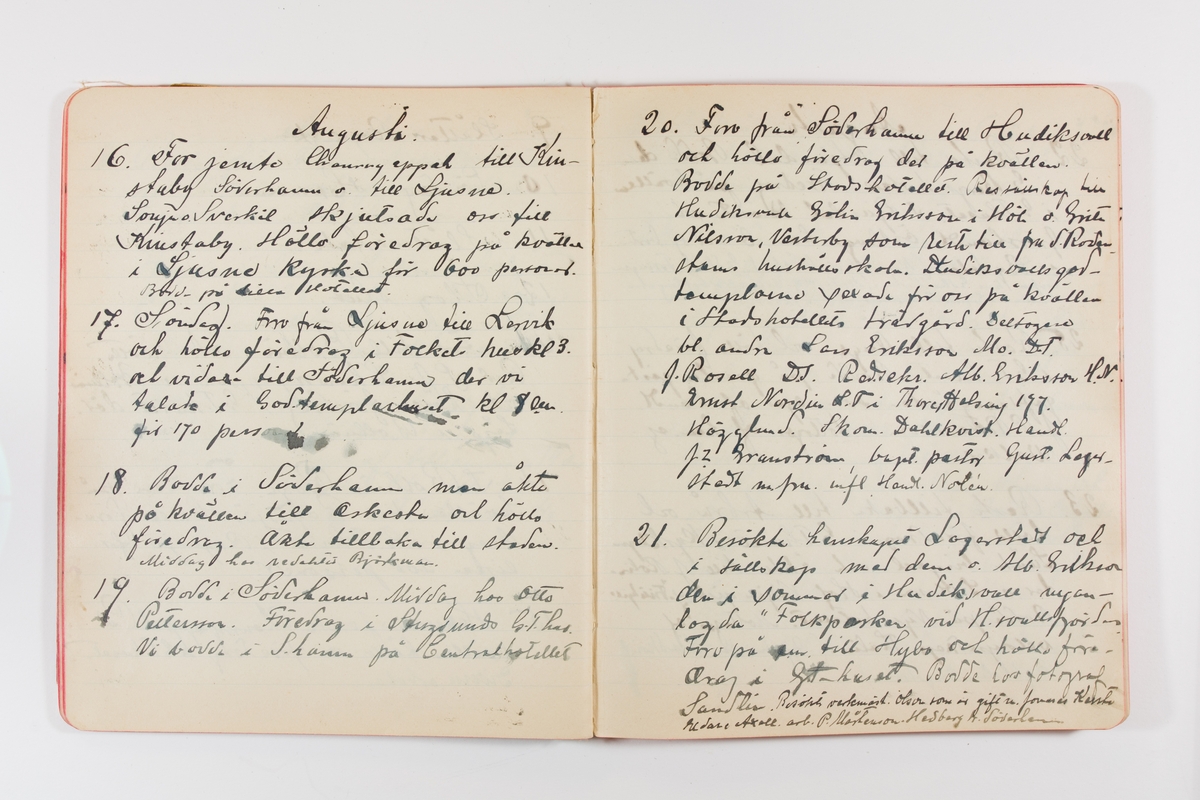 Augusti.
16. For jemte till Kin-
staby Söderhamn o. till Ljusne.
Sverkil skjutsade oss till
Kinstaby. Höllo föredrag på kvällen
i Ljusne kyrka för 600 personer.
Bodde på hotellet.
17. Söndag. Foro från Ljusne till Lervik
och höllo föredrag i Folkets hus kl 3.
och vidare till Söderhamn der vi
talade i Godtemplarhuset kl 8 em.
för 170 pers
18. Bodde i Söderhamn men åkte
på kvällen till Askesta och höllo
föredrag. Åkte tillbaka till staden.
Middag hos redaktör Björkman.
19. Bodde i Söderhamn. Middag hos Otto
Pettersson. Föredrag i Stugsunds G.T.hus.
Vi bodde i S.hamn på Centralhotellet
20. Foro från Söderhamn till Hudiksvall
och höllo föredrag der på kvällen.
Bodde på Stadshotellet. Ressällskap till
Hudiksvall Eriksson i o.
Nilsson, Vesterby som reste till fru d. Roden-
stams hushållsskola. Hudiksvallsgod-
templarne på kvällen
i Stadshotellets trädgård. Deltogo
bl. andra Lars Eriksson Mo. DT.
J. Rosell DS. Red.sekr. Alb. Eriksson H.N.
Ernst Nordin i Thorg Helsing 197.
Högglund. Skom. Dahlkvist. Handl.
J.Z. Granström, bapt. pastor Gust. Lager-
stedt m. fru. Handl. Nolén.
21. Besökte herskapet Lagerstedt och
i sällskap med dem o. Alb. Eriksson
den i sommar i Hudiksvall nyan-
lagda "Folkparken vid H.svallsfjärden
Foro på em. till Hybo och höllo före-
drag i GT-huset. Bodde hos fotograf
Sandlin. Besökte verkmäst. Olson som är gift m.
Axell. arb. P. Mårtenson. Hedberg fr. Söderhamn